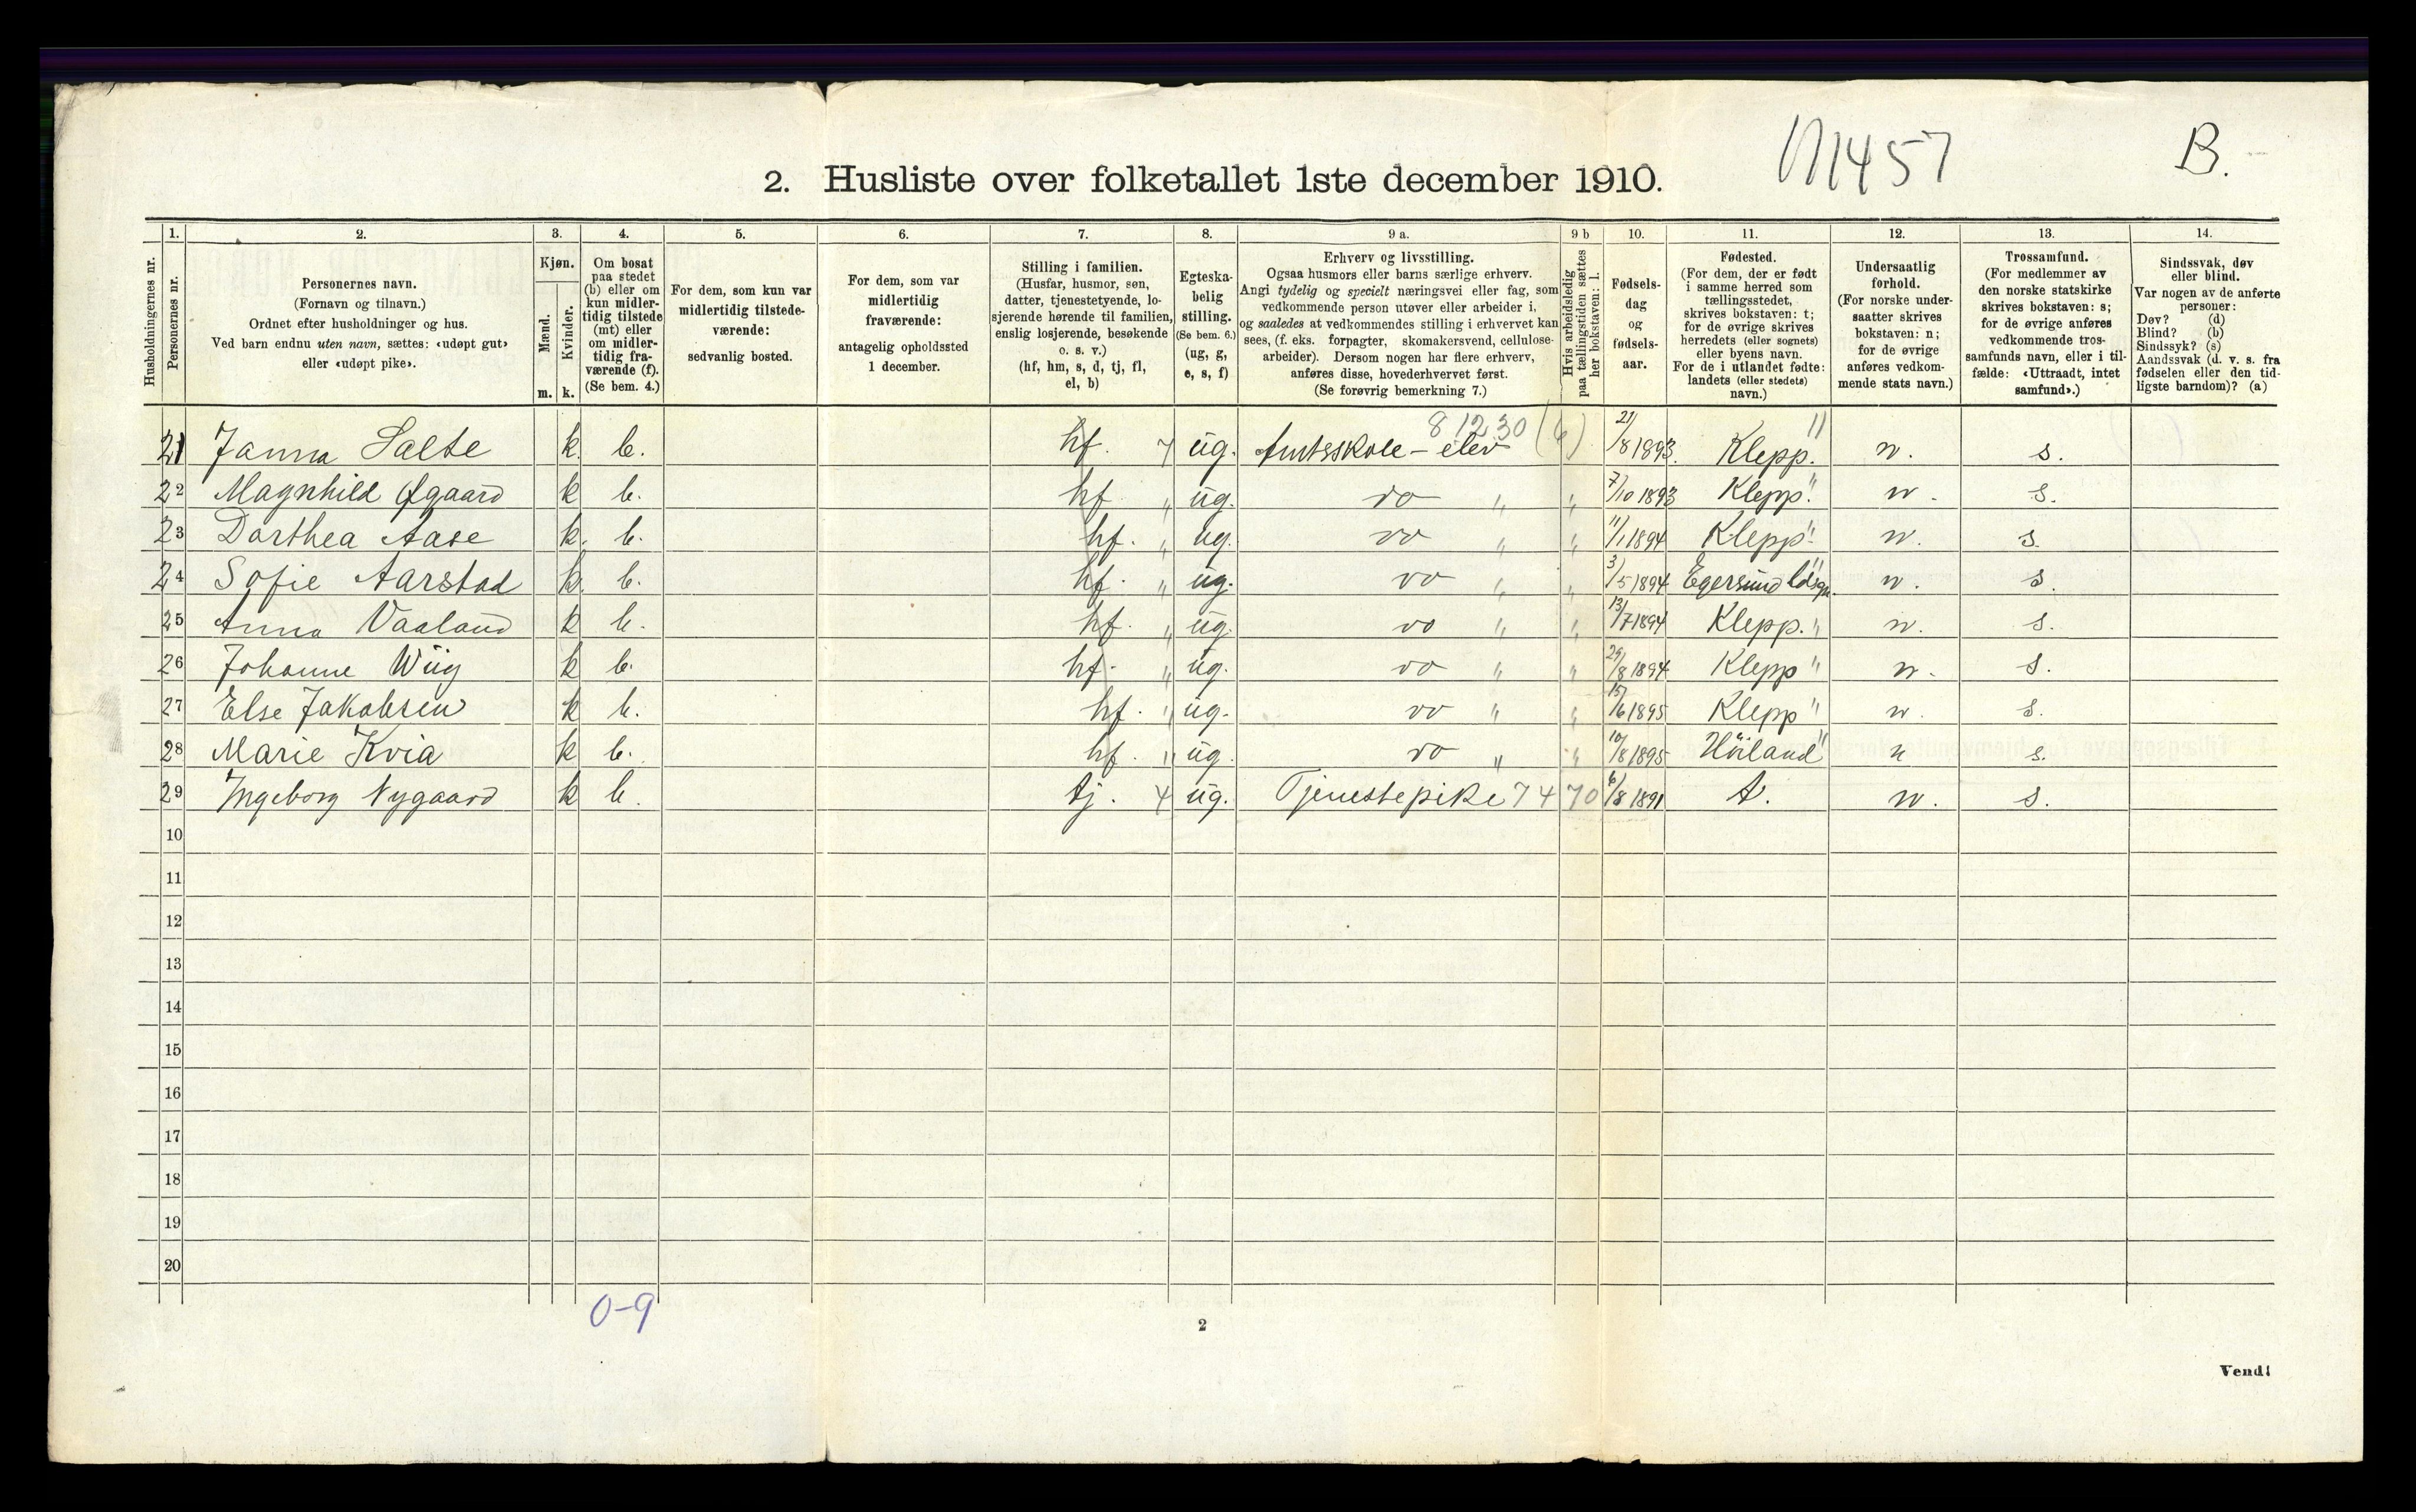 11457
B.
2. Husliste over folketallet 1ste december 1910.
Husholdningernes nr.
1.
Personernes nr.
2.
Personernes navn.
(Fornavn og tilnavn.)
Ordnet efter husholdninger og hus.
Ved barn endnu uten navn, sættes: «udøpt gut»
eller «udøpt pike».
3.
Kjøn.
Mænd.
Kvinder.
m. k.
4.
Om bosat
paa stedet
(b) eller om
kun midler-
tidig tilstede
(mt) eller
om midler-
tidig fra-
værende (f).
(Se bem. 4.)
5.
For dem, som kun var
midlertidig tilstede-
værende:
sedvanlig bosted.
6.
For dem, som var
midlertidig
fraværende:
antagelig opholdssted
1 december.
7.
Stilling i familien.
(Husfar, husmor, søn,
datter, tjenestetyende, lo-
sjerende hørende til familien,
enslig losjerende, besøkende
o. s. v.)
(hf, hm, s, d, tj, fl,
el, b)
8.
Egteska-
belig
stilling.
(Se bem. 6.)
(ug, g,
e, s, f)
9 a.
Erhverv og livsstilling.
Ogsaa husmors eller barns særlige erhverv.
Angi tydelig og specielt næringsvei eller fag, som
vedkommende person utøver eller arbeider i,
og saaledes at vedkommendes stilling i erhvervet kan
sees, (f. eks. forpagter, skomakersvend, cellulose-
arbeider). Dersom nogen har flere erhverv,
anføres disse, hovederhvervet først.
(Se forøvrig bemerkning 7.)
9 b
Hvis arbeidsledig
paa tællingstiden sættes
her bokstaven: l.
10.
Fødsels-
dag
og
fødsels-
aar.
11.
Fødested.
(For dem, der er født
i samme herred som
tællingsstedet,
skrives bokstaven: t;
for de øvrige skrives
herredets (eller sognets)
eller byens navn.
For de i utlandet fødte:
landets (eller stedets)
navn.)
12.
Undersaatlig
forhold.
(For norske under-
saatter skrives
bokstaven: n;
for de øvrige
anføres vedkom-
mende stats navn.)
13.
Trossamfund.
(For medlemmer av
den norske statskirke
skrives bokstaven: s;
for de øvrige anføres
vedkommende tros-
samfunds navn, eller i til-
fælde: «Uttraadt, intet
samfund».)
14.
Sindssvak, døv
eller blind.
Var nogen av de anførte
personer:
Døv? (d)
Blind? (b)
Sindssyk? (s)
Aandssvak (d. v. s. fra
fødselen eller den tid-
ligste barndom)? (a)
8 1230 (6)
21 Janna Salte k. b. hf. 7 ug. Amtsskole-elev 21/8 1893. Klepp. " n. s.
22 Magnhild Øgaard k b. hf. " ug. do " " 7/10 1893 Klepp. " n. s.
23 Dorthea Aase k. b. hf. " ug. do " " 11/1 1894 Klepp " n. s.
24 Sofie Aarstad k. b. hf. " ug. do " " 3/5 1894 Egersund ldsgn. " n. s.
25 Anna Vaaland k b. hf. " ug. do " " 13/7 1894 Klepp. " n. s.
26 Johanne Wiig k b. hf. " ug. do " " 29/8 1894 Klepp " n. s.
27 Else Jakobsen k b. hf. " ug. do " " 15/6 1895 Klepp " n. s.
28 Marie Kvia k b. hf. " ug. do " " 10/8 1895 Höiland " n s.
29 Ingeborg Nygaard k b. tj. 4 ug. Tjenestepike 74 70 6/8 1891 t. n. s.
10
11
12
13
14
15
16
17
18
19
20
0-9
2
Vend!